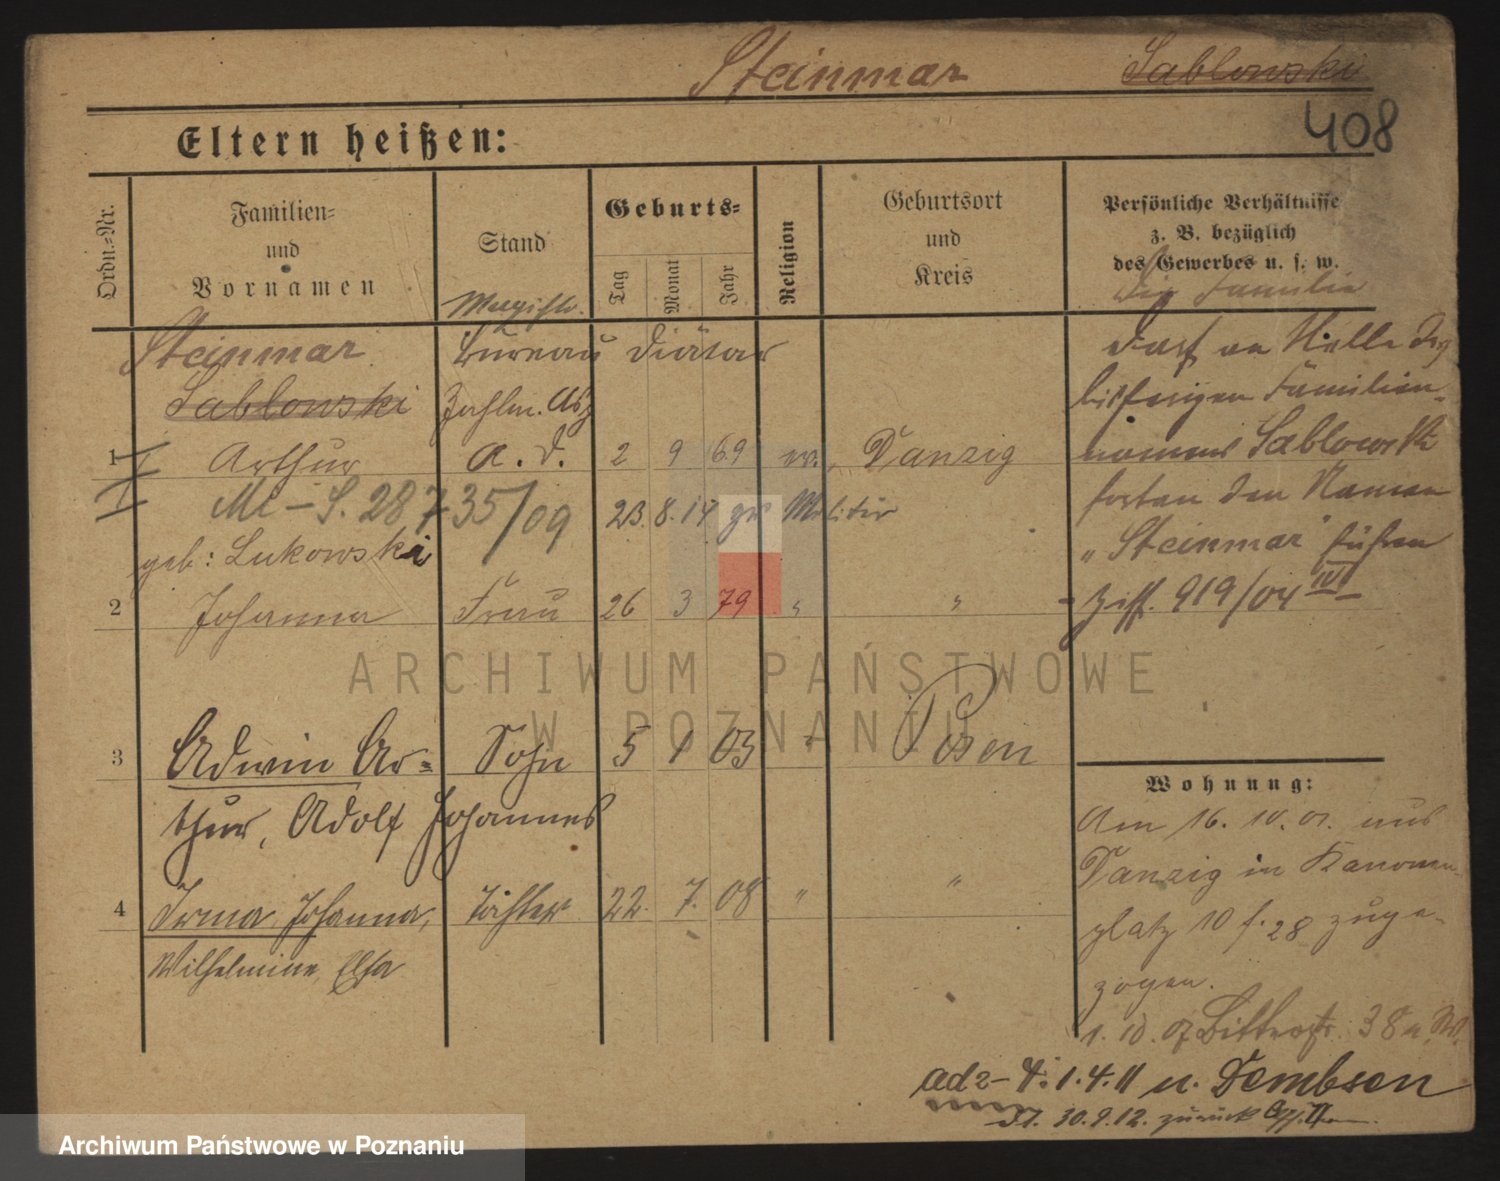 Steinmar Sablowski
408
Eltern heißen:
Ordn.-Nr.
Familien- und Vornamen
Stand
Geburts-
Tag
Monat
Jahr
Religion
Geburtsort und Kreis
Persönliche Verhältnisse
z. B. bezüglich
des Gewerbes u. s. w.
Die Familie
darf an Stelle des
bisherigen Familien-
namens Sablowski
fortan den Namen
„Steinmar" führen
Ziff. 919/04 IV
Magistr.
Steinmar Bureau Diätar
Sablowski Zahlm. Asp.
1 Arthur a. D. 2 9 69 ev. Danzig
Ml-S. 28735/09 23. 8. 14 Militär
geb: Lukowski
2 Johanna Frau 26 3 79 " "
3 Adwin Ar- Sohn 5 1 03 " Posen
thur, Adolf Johannes
4 Irma, Johanna, Tochter 22. 7. 08 " "
Wilhelmine, Elsa
Wohnung:
Am 16. 10. 01. aus
Danzig in Kanonen-
platz 10 f. 28 zuge-
zogen.
1. 10. 07 Bitterstr. 38
ad 2-4: 1.4.11 n. Dembsen
30.9.12. zurück
ARCHIWUM PAŃSTWOWE
W POZNANIU
Archiwum Państwowe w Poznaniu